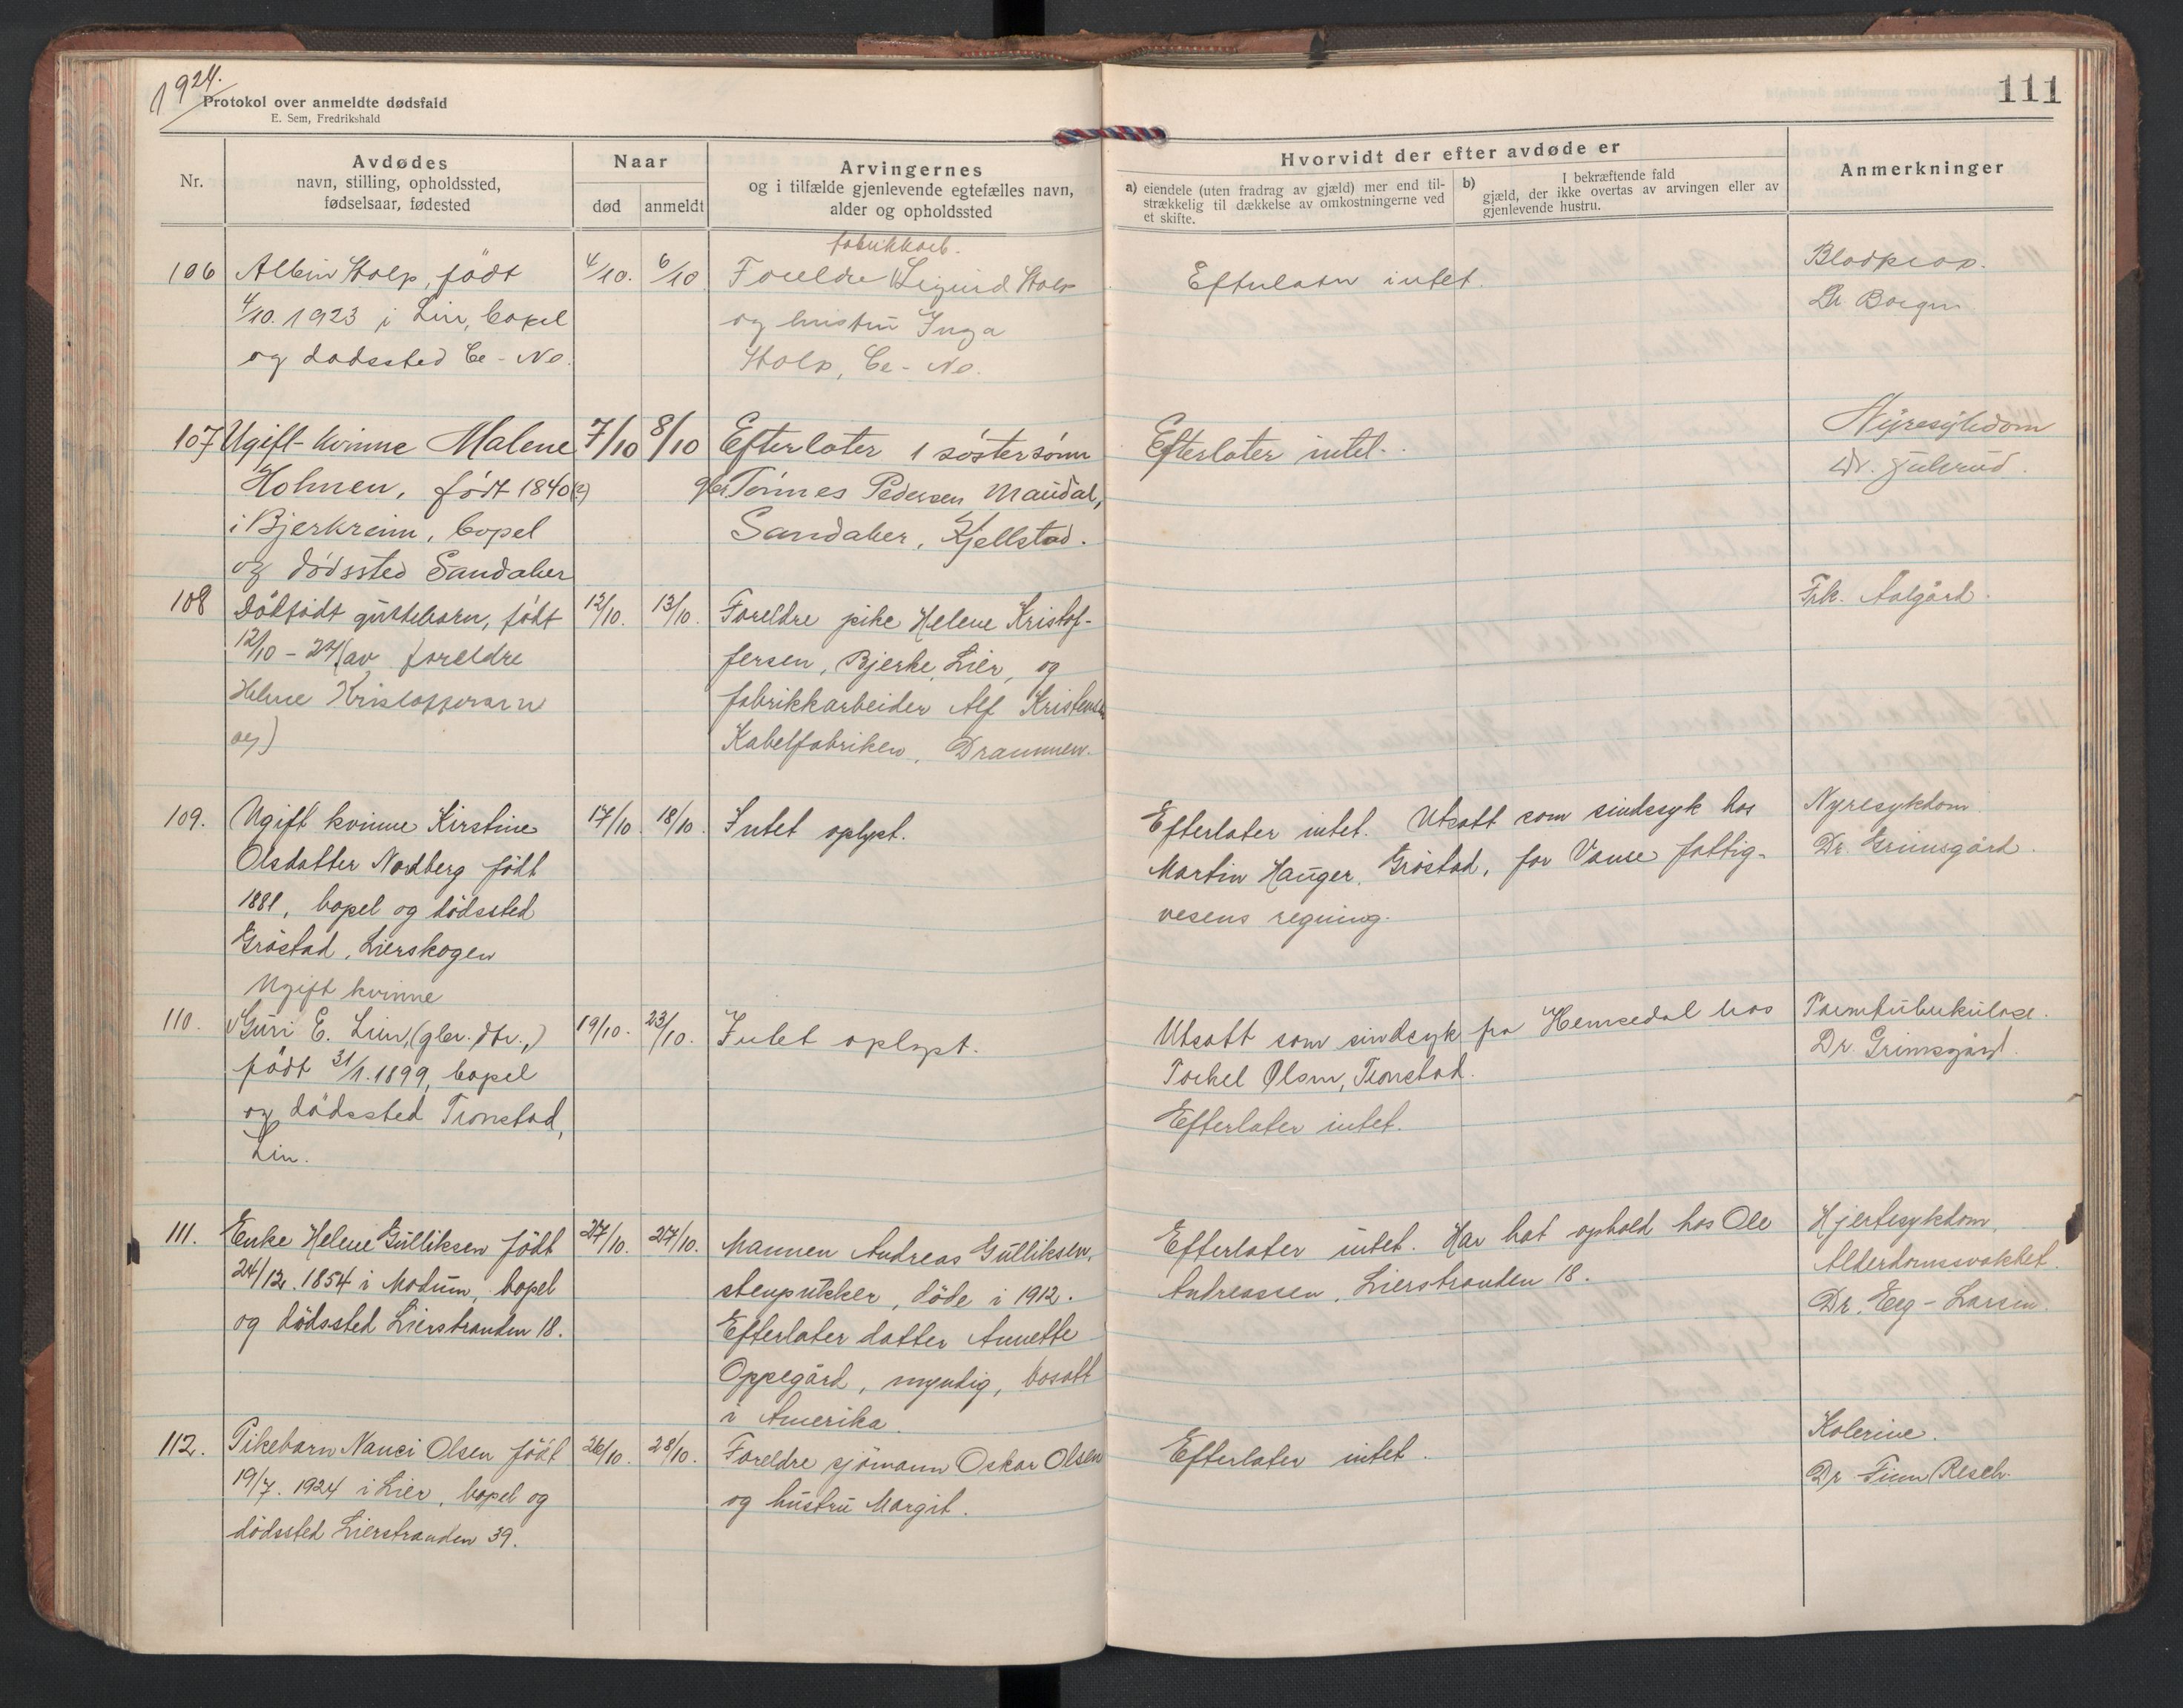 1924.
Protokol over anmeldte dødsfald
E. Sem, Fredrikshald
111
Nr.
Avdødes
navn, stilling, opholdssted,
fødselsaar, fødested
Naar
død
anmeldt
Arvingernes
og i tilfælde gjenlevende egtefælles navn,
alder og opholdssted
Hvorvidt der efter avdøde er
a) eiendele (uten fradrag av gjæld) mer end til-
strækkelig til dækkelse av omkostningerne ved
et skifte.
b) I bekræftende fald
gjæld, der ikke overtas av arvingen eller av
gjenlevende hustru.
Anmerkninger
106
Albin Holp, født
4/10. 1923 i Lier, bopel
og dødssted Ce-No.
4/10.
6/10
fabrikkarb.
Foreldre Sigurd Holp
og hustru Inga
Holp, Ce-No.
Efterlater intet.
Dr
107
Ugift kvinne Malene
Holmen, født 1840(?)
i Bjerkreim, bopel
og dødssted Sandaker
7/10
8/10
Efterlater 1 søstersønn
Tønnes Pedersen Maudal,
Sandaker, Kjellstad.
Efterlater intet.
Nyresykdom
Dr. Gulerud.
108
Dødfødt guttebarn, født
12/10-24 (av foreldre
Helene Kristoffersen
og)
12/10.
13/10.
Foreldre pike Helene Kristof-
fersen, Bjerke, Lier, og
fabrikkarbeider Alf Kristensen
Kabelfabriken, Drammen.
Frk. Aalgård.
109.
Ugift kvinne Kirstine
Olsdatter Nordberg født
1881, bopel og dødssted
Grøstad, Lierskogen
17/10
18/10.
Intet oplyst.
Efterlater intet. Utsatt som sindssyk hos
Martin Hauger, Grøstad, for Vanse fattig-
vesens regning.
Nyresykdom
Dr. Grimsgård.
110.
Ugift kvinne
Guri E. Lien, (gbr. dtr.,)
født 31/1. 1899, bopel
og dødssted Tronstad,
Lier.
19/10.
23/10.
Intet oplyst.
Utsatt som sindsyk fra Hemsedal hos
Torkel Olsen, Tronstad.
Efterlater intet.
Tarmtuberkulose.
Dr. Grimsgård.
111.
Enke Helene Gulliksen født
24/12. 1854 i Modum, bopel
og dødssted Lierstranden 18.
27/10.
27/10.
Mannen Andreas Gulliksen,
stenpukker, døde i 1912.
Efterlater datter Annette
Oppegård, myndig, bosatt
i Amerika.
Efterlater intet. Har hat ophold hos Ole
Andreassen, Lierstranden 18.
Hjertesykdom,
Alderdomssvakhet.
Dr. Eeg-Larsen.
112.
Pikebarn Nanci Olsen født
19/7. 1924 i Lier, bopel og
dødssted Lierstranden 39.
26/10.
28/10.
Foreldre sjømann Oskar Olsen
og hustru Margit.
Efterlater intet.
Kolerine.
Dr. Finn Resch.